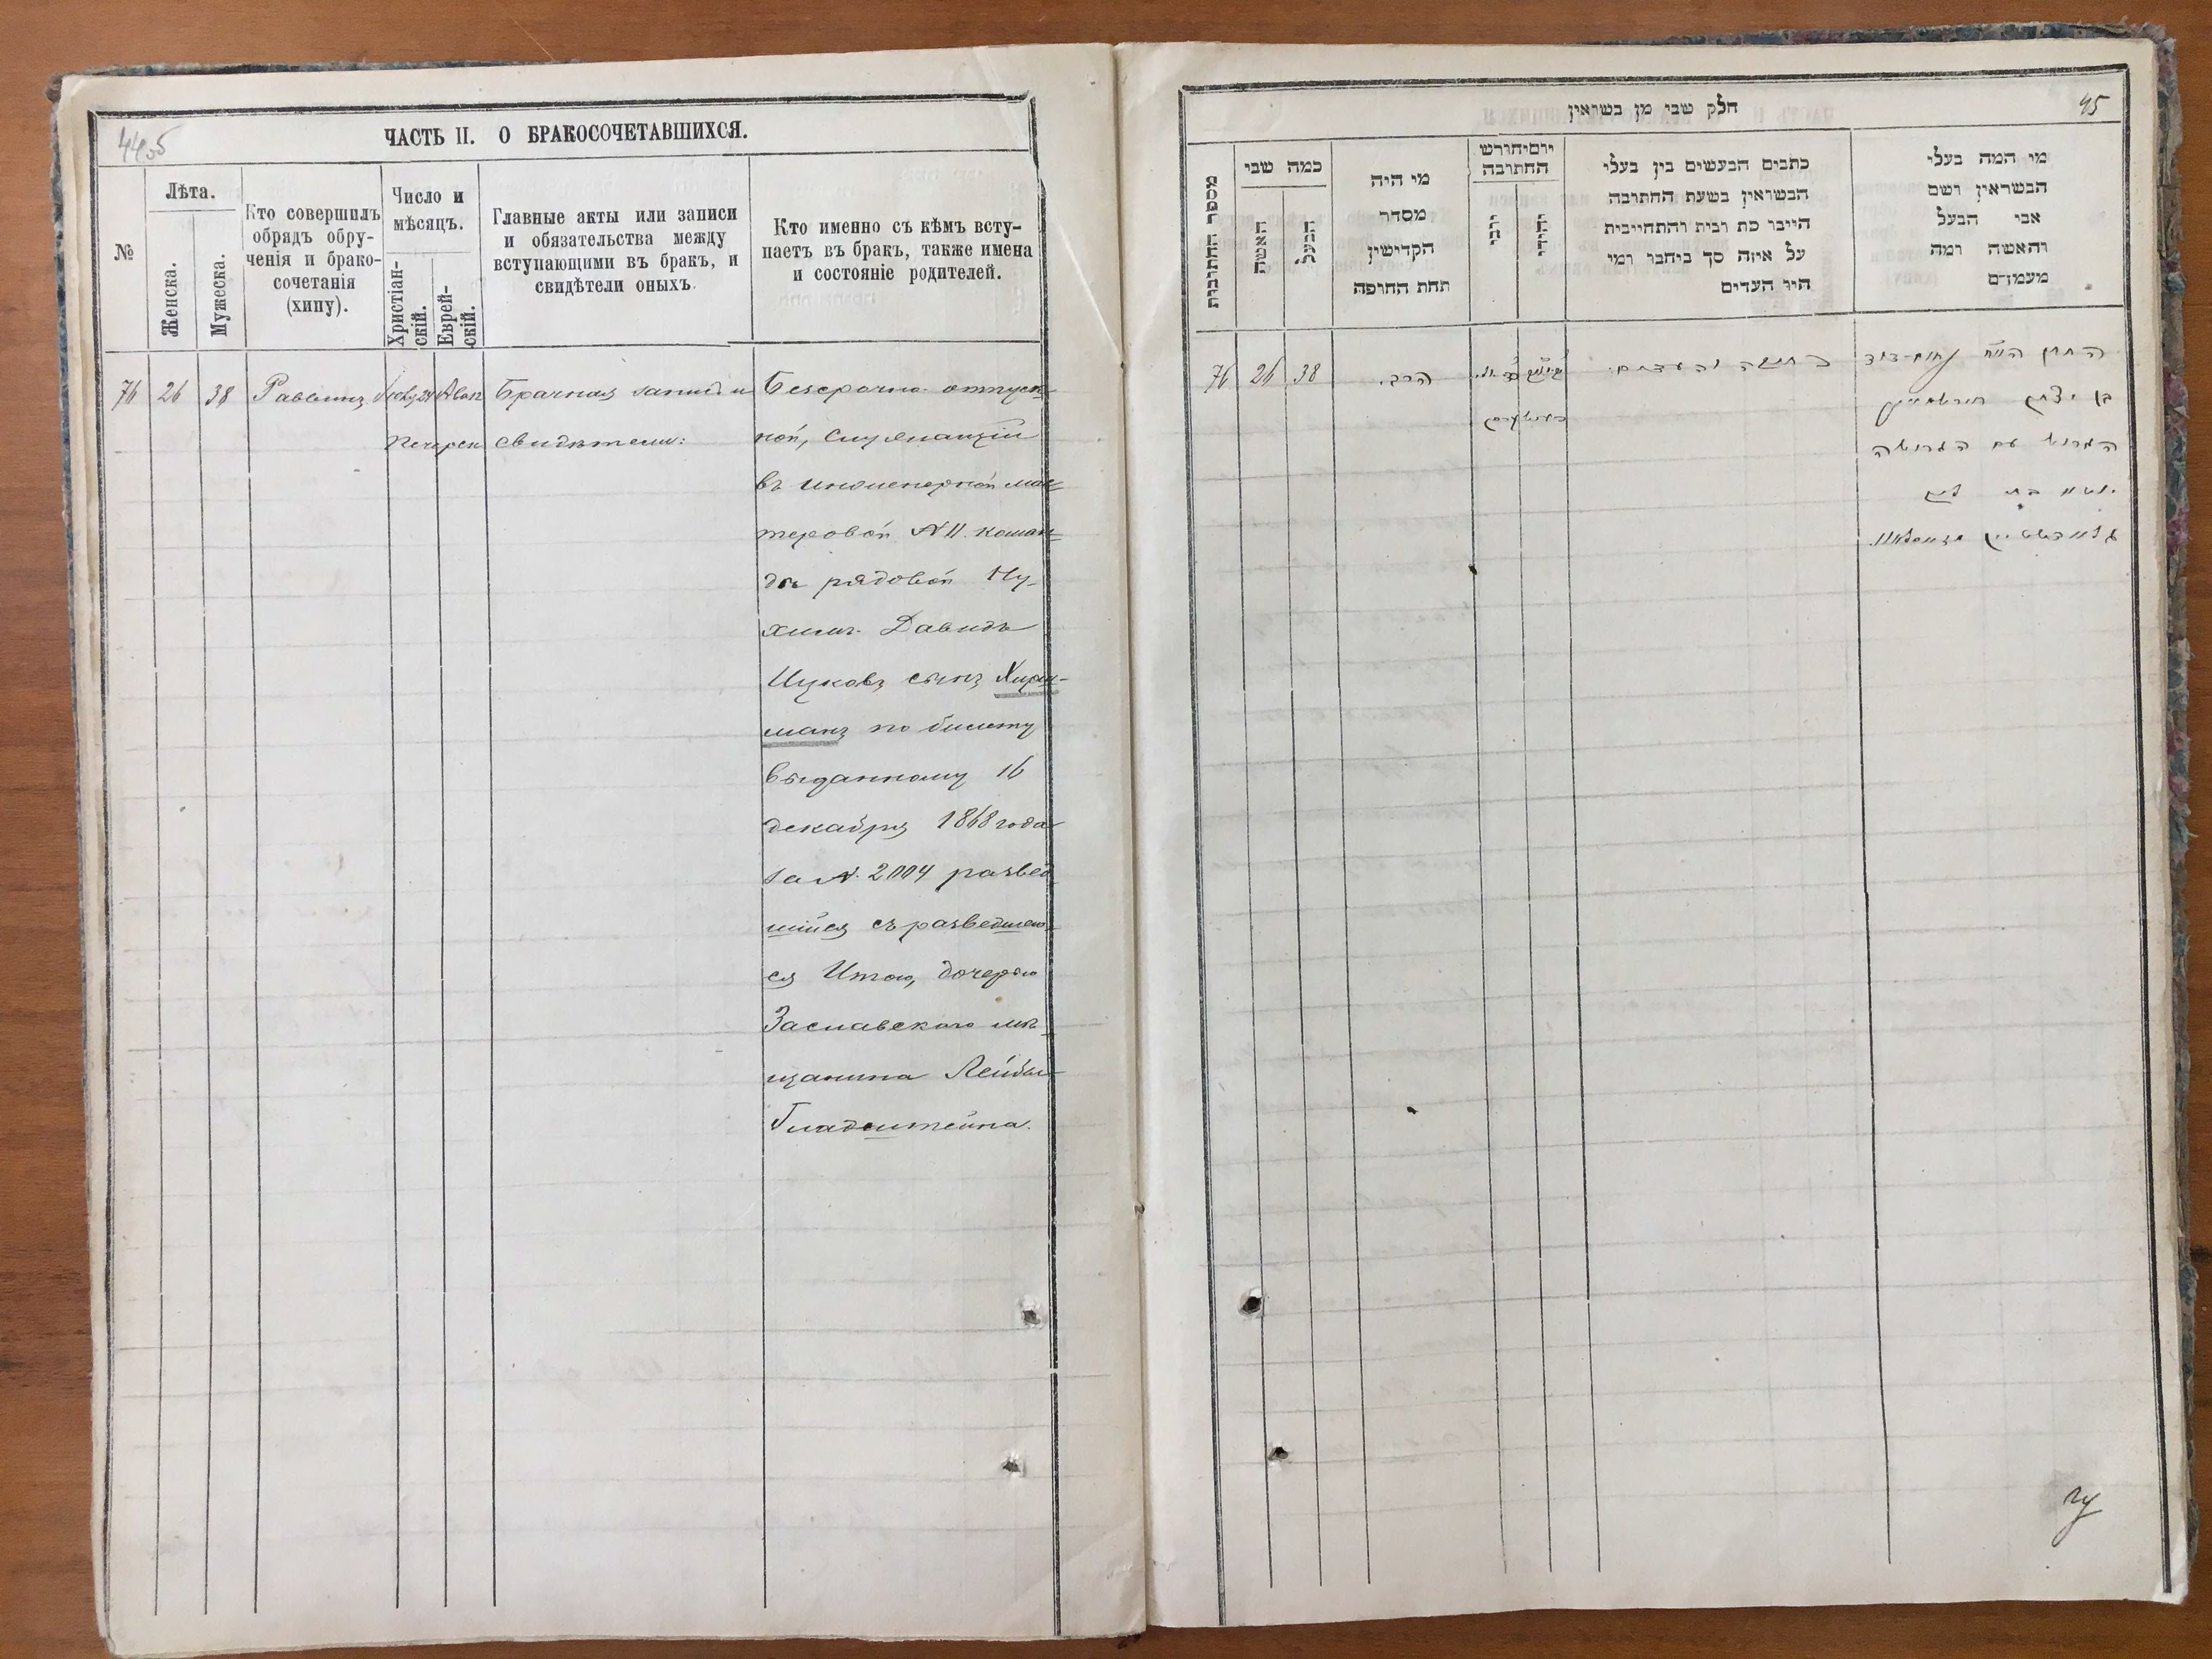 44об
ЧАСТЬ II. О БРАКОСОЧЕТАВШИХСЯ.
№
Лѣта.
Женска.
Мужеска.
Кто совершилъ
обрядъ обру-
ченія и брако-
сочетанія
(хипу).
Число и
мѣсяцъ.
Христіан-
скій.
Еврей-
скій.
Главные акты или записи
и обязательства между
вступающими въ бракъ, и
свидѣтели оныхъ.
Кто именно съ кѣмъ всту-
паетъ въ бракъ, также имена
и состояніе родителей.
76 26 38 Раввинъ
24
Печерск
Брачная запись и
свидѣтели:
Безсрочно отпуск-
ной, служащій
въ инженерной мас=
теровой № 11. коман=
ды рядовой Ну-
химъ Давидъ
Ицковъ сынъ Хирш-
манъ по билету
выданному 16
декабря 1868 года
за №. 2004 развед
шійся съ разведшею
ся Итою, дочерью
Заславского мѣ
щанина Лейбы
Гладштейна.
45
חלק שני מן בשואין
מספר החתובות
כמה שני
האשה
הבעל
מי היה
מסדר
הקדישין
תחת החופה
יום וחורש
החתובה
יהודי
כתבים הבעשים בין בעלי
הבשואין בשעת החתובה
הייבו כת ובית והתחייבית
על איזה סך ביחבו ומי
היו העדים
מי המה בעלי
הבשואין ושם
אבי הבעל
והאשה ומה
מעמדם
76 26 38 הרב.
החתן
בן יצחק
הגרוש עם הגרושה
בת